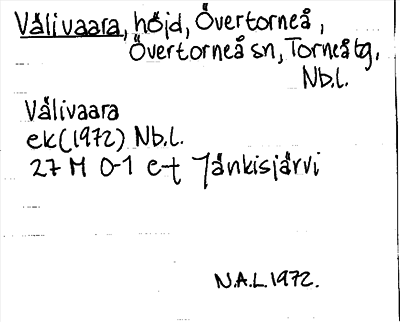 Välivaara, höjd, Övertorneå,
Övertorneå sn, Torneå tg,
Nb.l.
Välivaara
ek(1972) Nb.l.
27 M 0-1 e-f Jänkisjärvi
N.A.L. 1972.